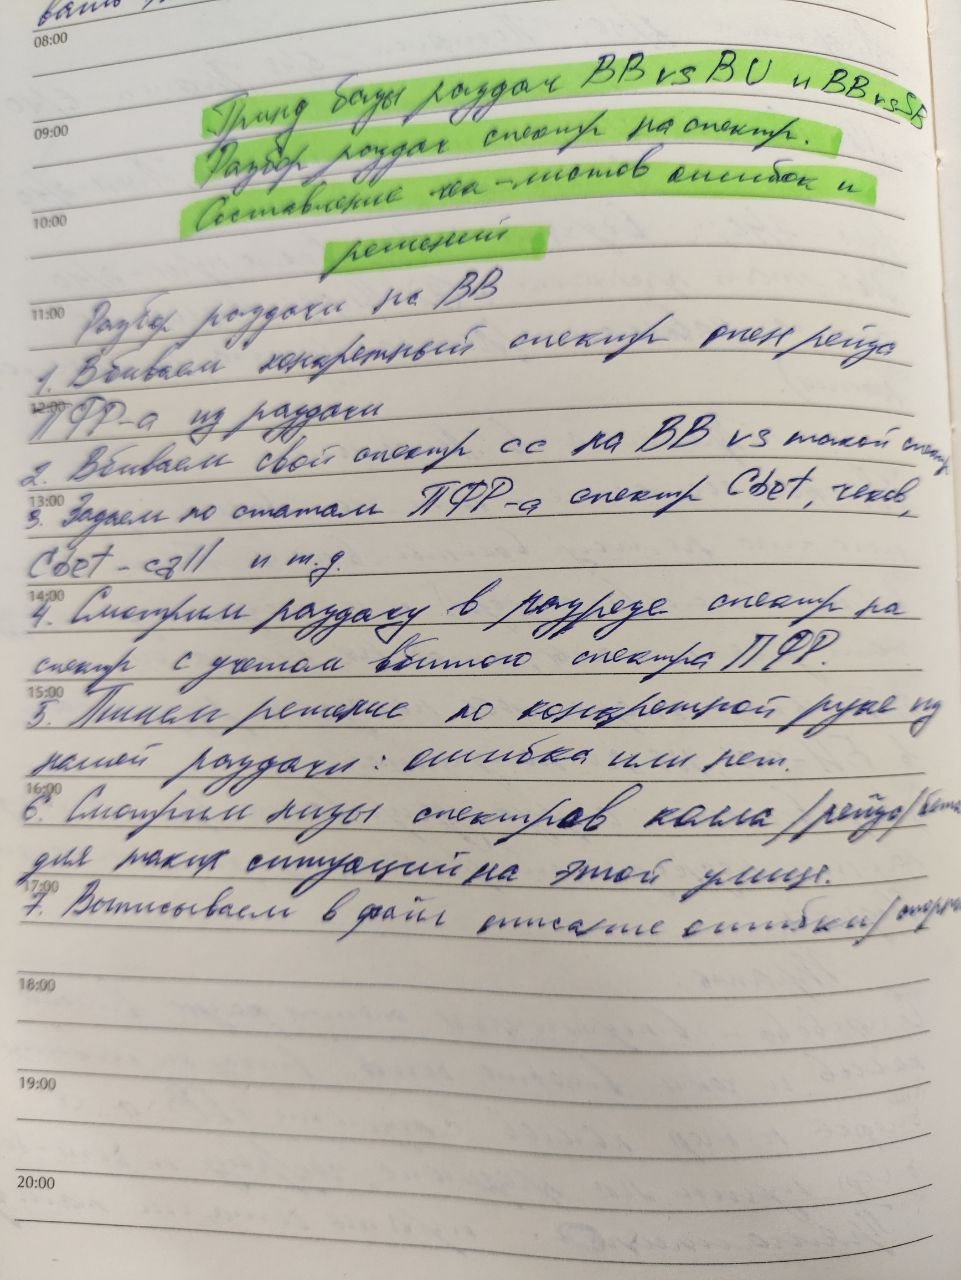 08:00
Гринд базы раздач BB vs BU и BB vs SB
09:00
Разбор раздач спектр на спектр.
Составление чек-листов ошибок и
10:00
решений
11:00
Разбор раздачи на BB
1. Вбиваем конкретный спектр опен рейза
12:00
ПФР-а из раздачи
2. Вбиваем свой спектр cc на BB vs такой спектр
13:00
3. Задаем по статам ПФР-а спектр Cbet, чеков,
Cbet-call и т.д.
14:00
4. Смотрим раздачу в разрезе спектр на
спектр с учетом вбитого спектра ПФР.
15:00
5. Пишем решение по конкретной руке из
нашей раздачи: ошибка или нет.
16:00
6. Смотрим низы спектров колла/рейза/бета
для таких ситуаций на этой улице.
17:00
7. Выписываем в файл описание ошибки/
18:00
19:00
20:00